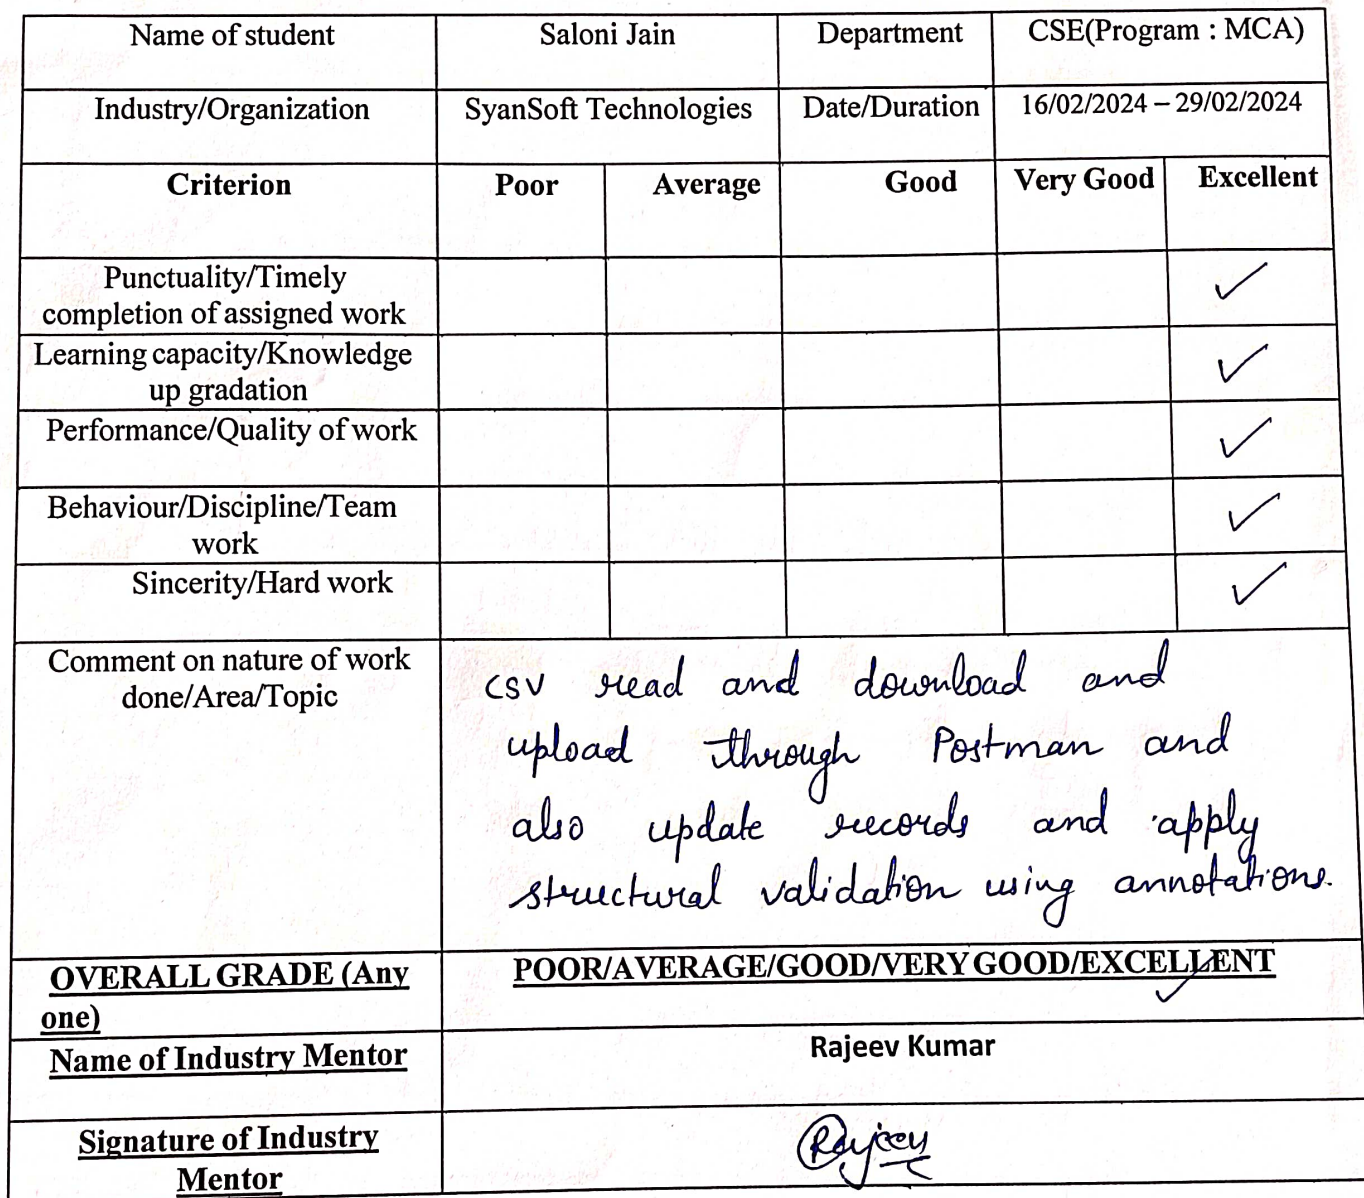 Name of student Saloni Jain Department CSE(Program : MCA)
Industry/Organization SyanSoft Technologies Date/Duration 16/02/2024 – 29/02/2024
Criterion Poor Average Good Very Good Excellent
Punctuality/Timely
completion of assigned work ✓
Learning capacity/Knowledge
up gradation ✓
Performance/Quality of work ✓
Behaviour/Discipline/Team
work ✓
Sincerity/Hard work ✓
Comment on nature of work
done/Area/Topic
CSV read and download and
upload through Postman and
also update records and apply
structural validation using annotations.
OVERALL GRADE (Any
one)
POOR/AVERAGE/GOOD/VERY GOOD/EXCELLENT ✓
Name of Industry Mentor Rajeev Kumar
Signature of Industry
Mentor
Rajeev